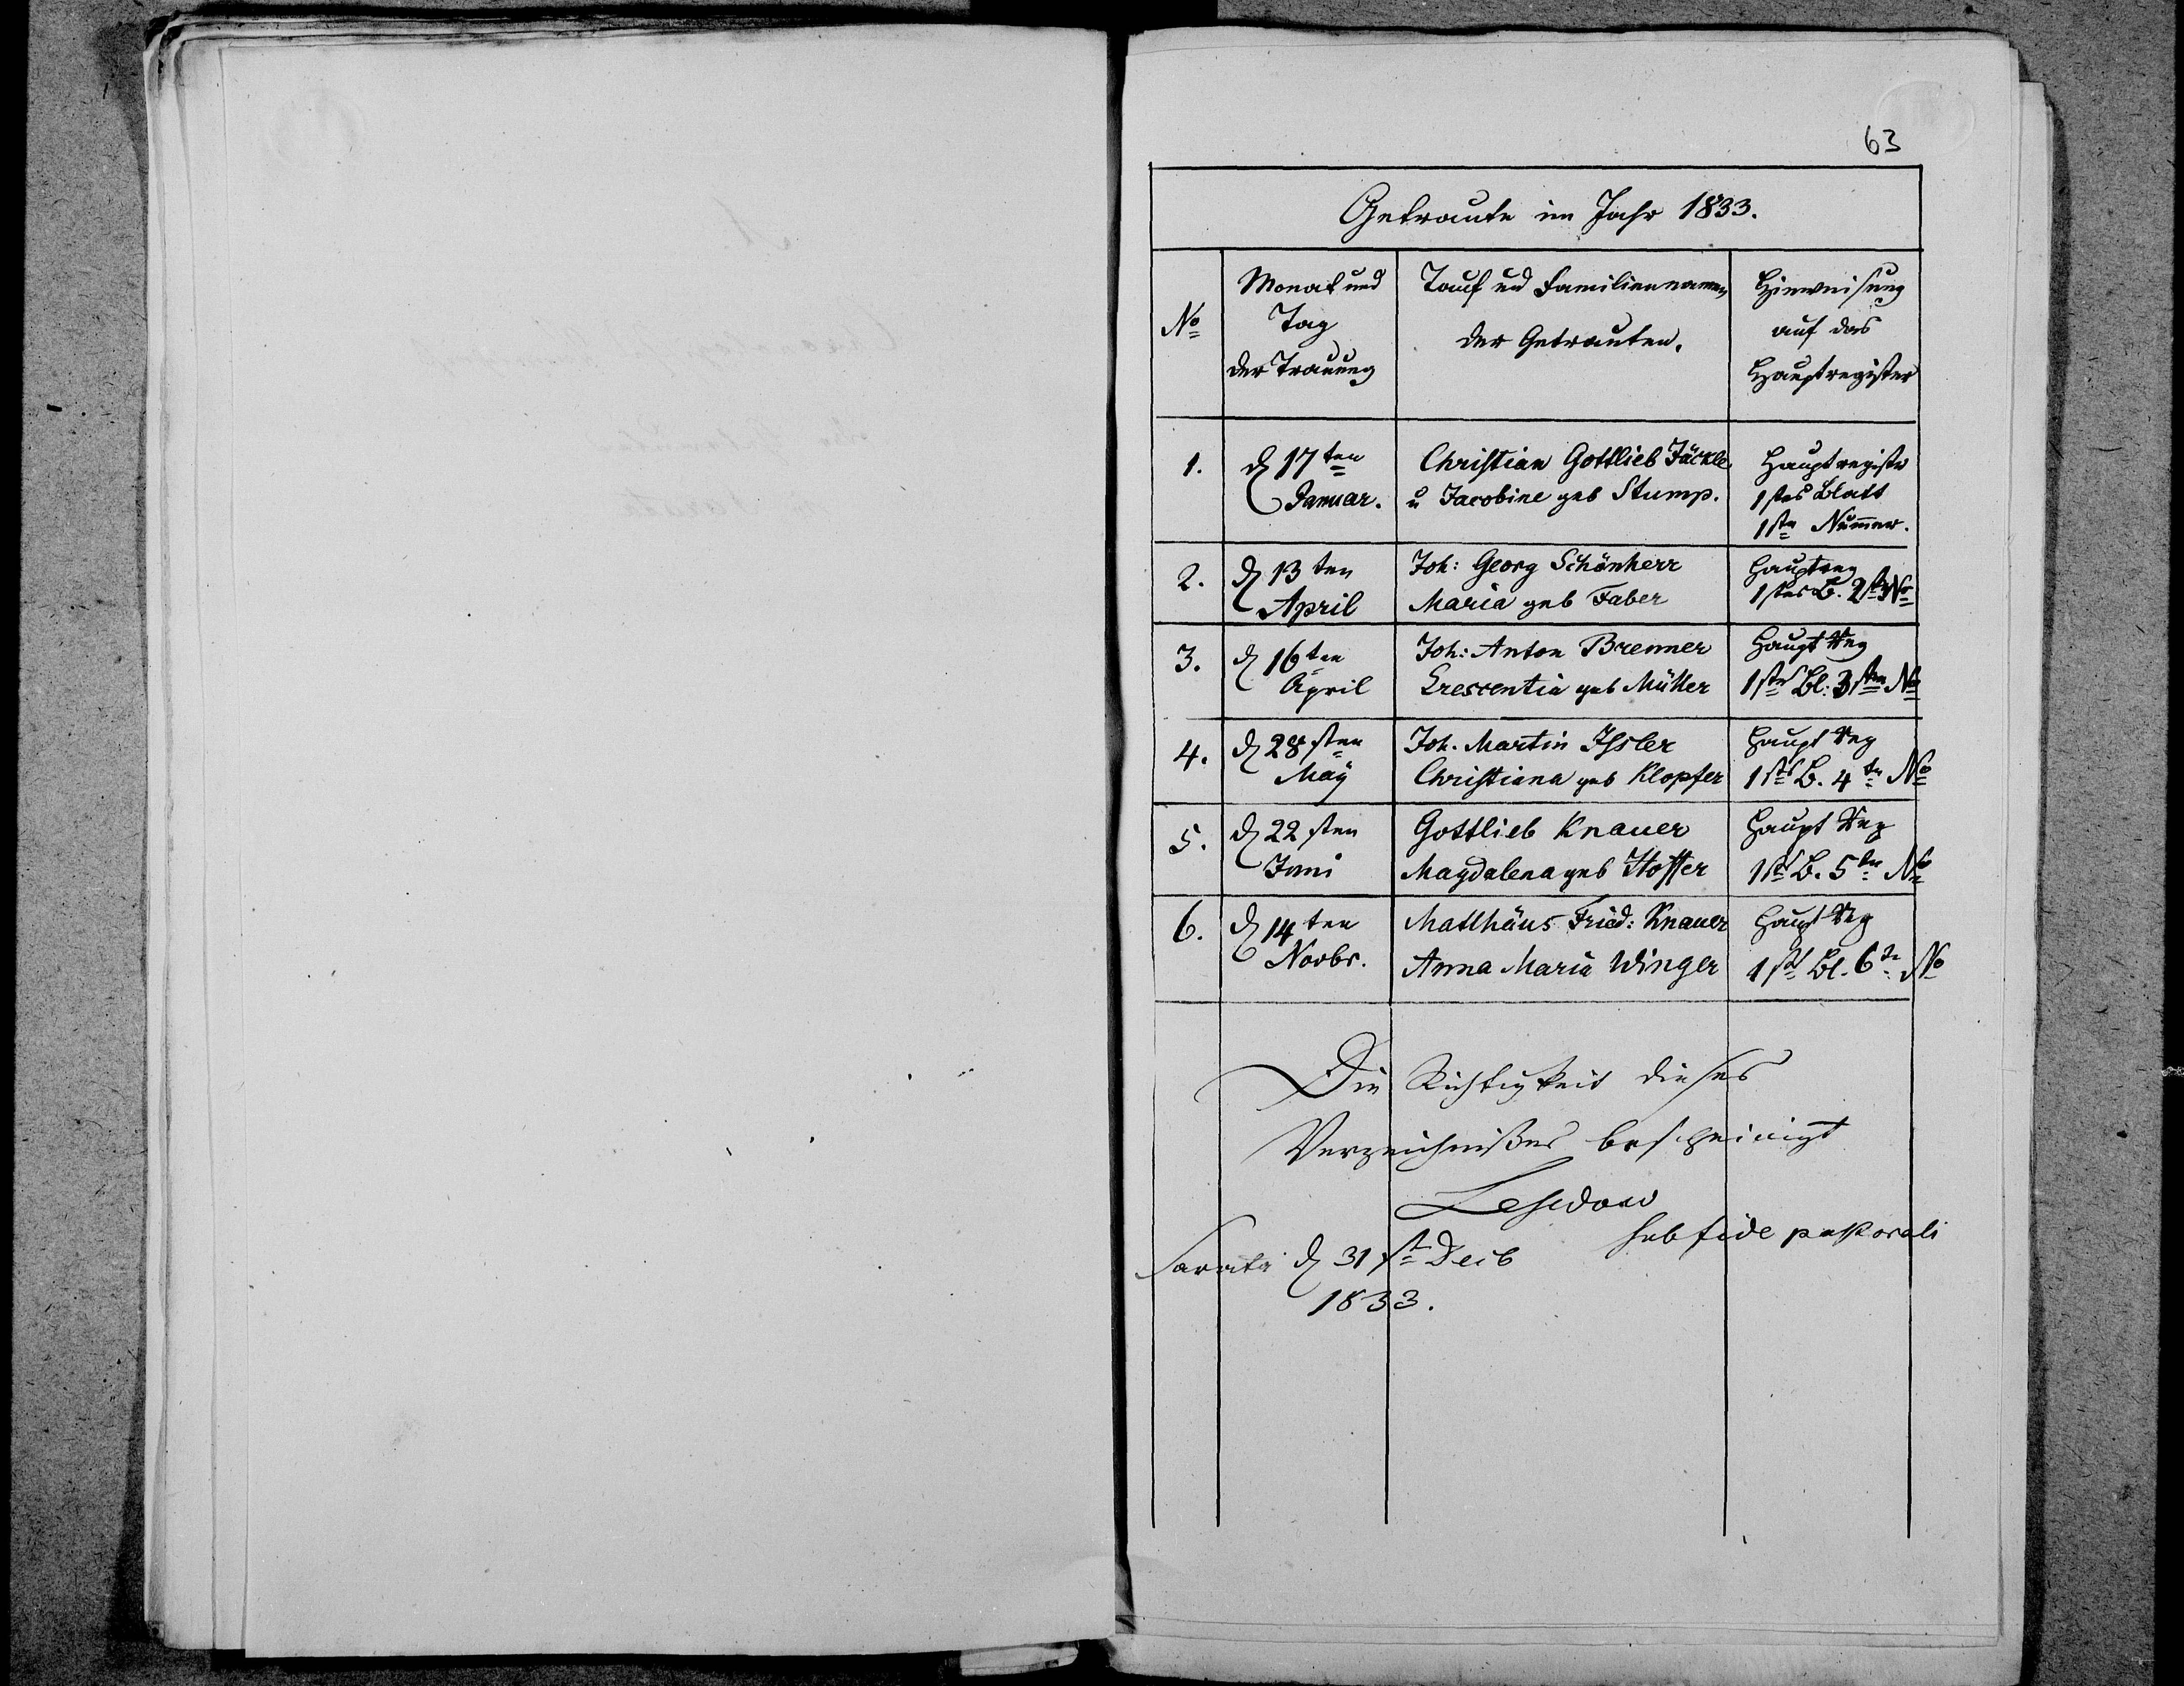 63
Getraute im Jahr 1833.
No
Monat und
Tag
der Trauung
Tauf und Familiennamen
der Getrauten.
Hinweisung
auf das
Hauptregister
1.
d 17ten
Januar.
Christian Gottlieb Jäckle
u Jacobine geb Stump.
Hauptregister
1stes Blatt
1ste Nummer.
2.
d 13ten
April
Joh: Georg Schönherr
Maria geb Faber
Hauptreg
1stes B. 2te No
3.
d 16ten
April
Joh: Anton Brenner
Crescentia geb Müller
Haupt Reg
1stes Bl: 3ten No
4.
d 28sten
May
Joh. Martin Issler
Christiana geb Klopfer
Haupt Reg
1stes B. 4te No
5.
d 22sten
Juni
Gottlieb Knauer
Magdalena geb Hoffer
Haupt Reg
1stes B. 5te No
6.
d 14ten
Novbr.
Matthäus Fried: Knauer
Anna Maria Winger
Haupt Reg
1stes Bl. 6te No
Die Richtigkeit dieses
Verzeichnißes bescheinigt
sub fide pastorali
Sarata d 31st Decb
1833.